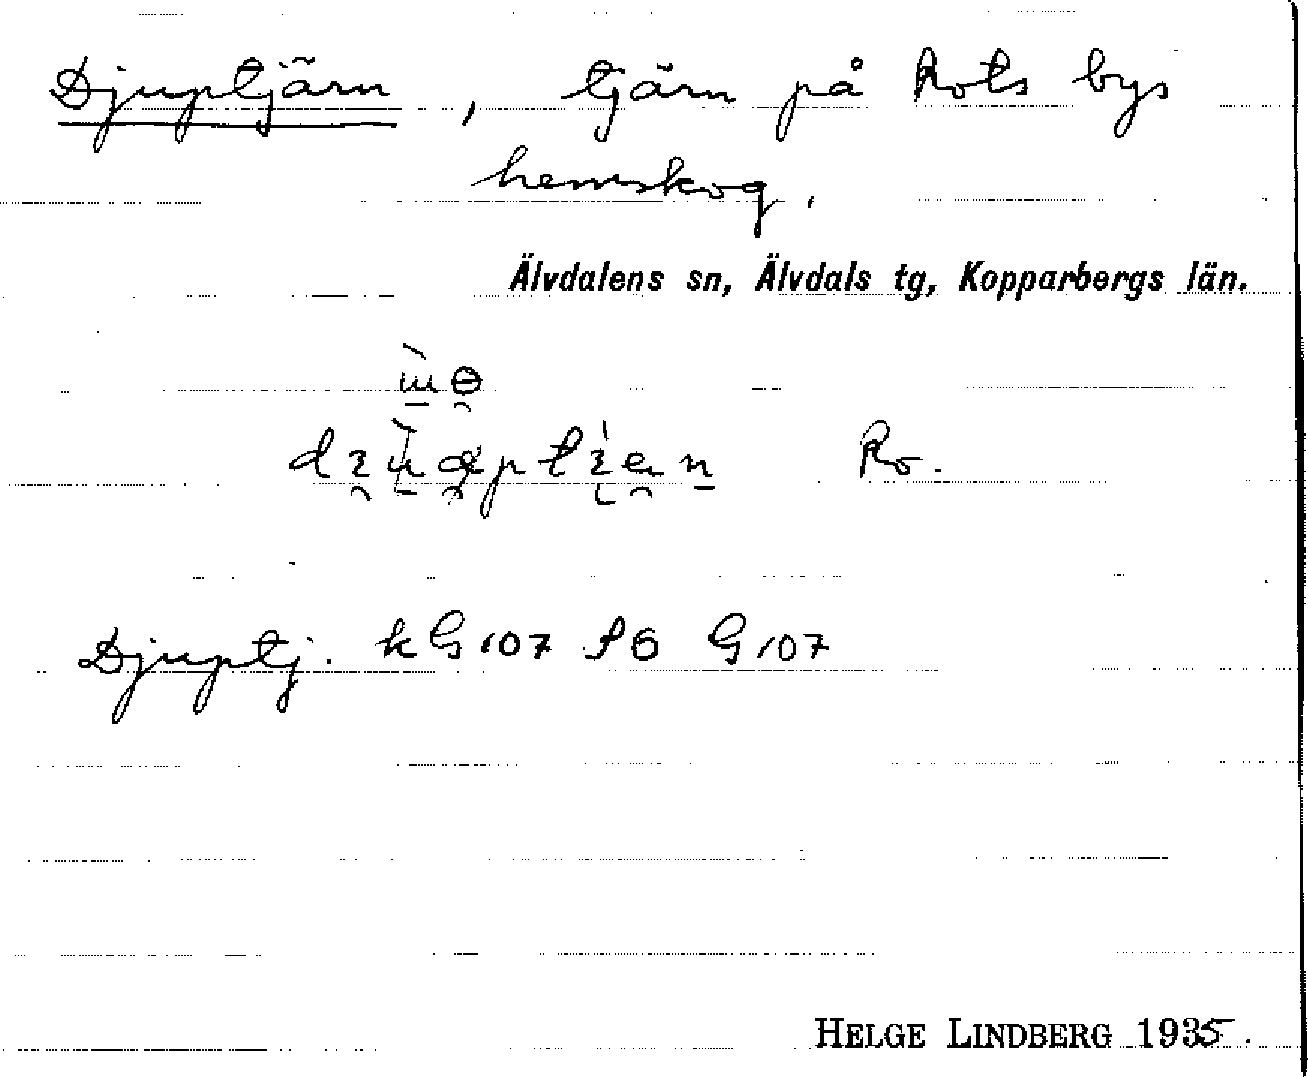 Djuptjärn, tjärn på Rots bys
hemskog.
Älvdalens sn, Älvdals tg, Kopparbergs län.
Ro.
Djuptj. kG107 S6 G107
HELGE LINDBERG 1935.